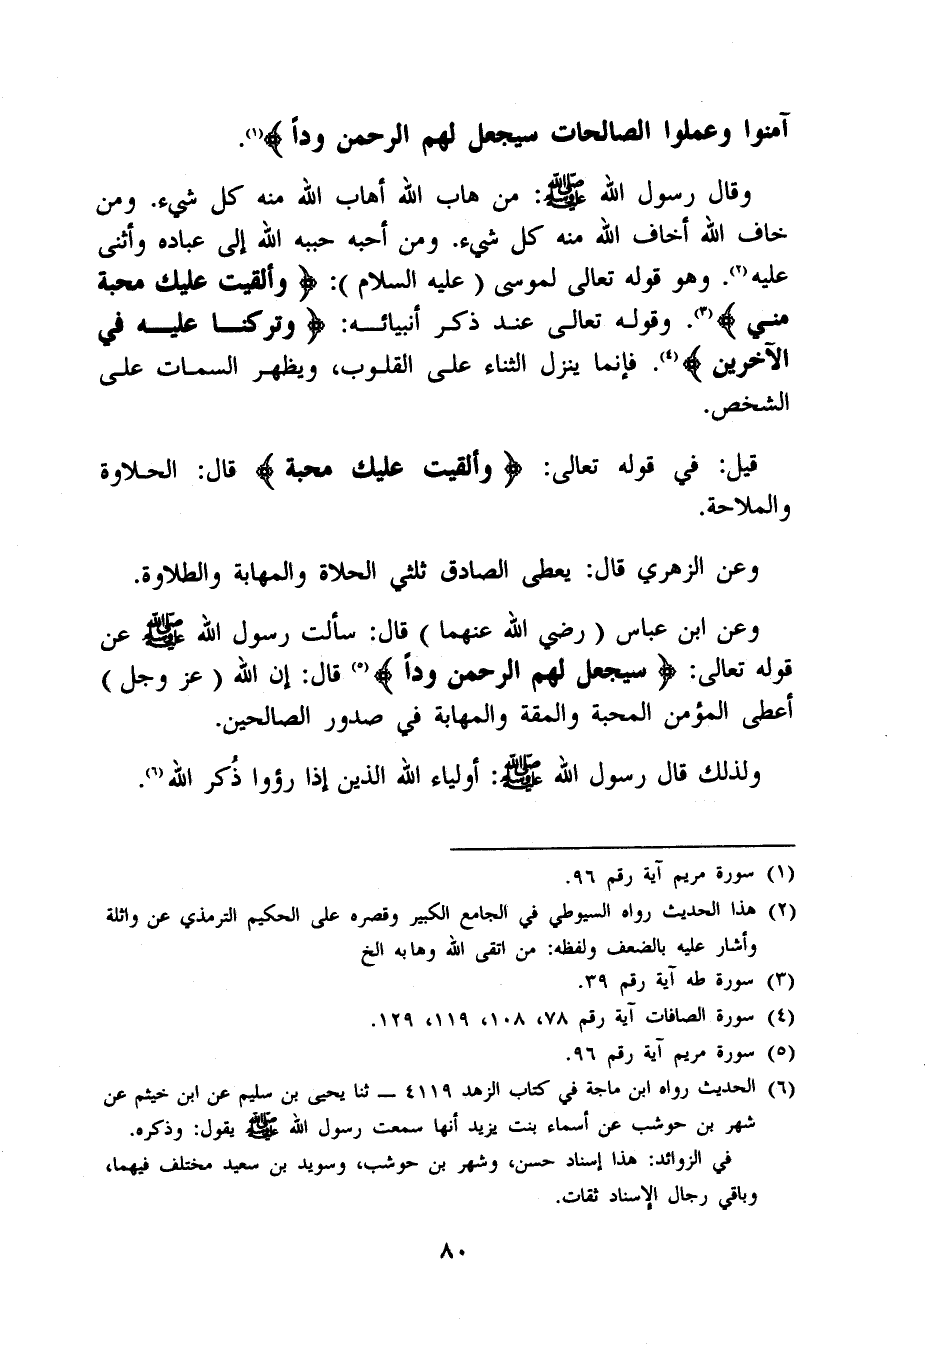 آمنوا وعملوا الصالحات سيجعل لهم الرحمن وداً ﴾(١).
وقال رسول الله ﷺ: من هاب الله أهاب الله منه كل شيء. ومن
خاف الله أخاف الله منه كل شيء. ومن أحبه حببه الله إلى عباده وأثنى
عليه(٢). وهو قوله تعالى لموسى ( عليه السلام ): ﴿ وألقيت عليك محبة
مني ﴾(٣). وقوله تعالى عند ذكر أنبيائه: ﴿ وتركنا عليه في
الآخرين ﴾(٤). فإنما ينزل الثناء على القلوب، ويظهر السمات على
الشخص.
قيل: في قوله تعالى: ﴿ وألقيت عليك محبة ﴾ قال: الحلاوة
والملاحة.
وعن الزهري قال: يعطى الصادق ثلثي الحلاة والمهابة والطلاوة.
وعن ابن عباس ( رضي الله عنهما ) قال: سألت رسول الله ﷺ عن
قوله تعالى: ﴿ سيجعل لهم الرحمن وداً ﴾(٥) قال: إن الله ( عز وجل )
أعطى المؤمن المحبة والمقة والمهابة في صدور الصالحين.
ولذلك قال رسول الله ﷺ: أولياء الله الذين إذا رؤوا ذُكر الله(٦).
(١) سورة مريم آية رقم ٩٦.
(٢) هذا الحديث رواه السيوطي في الجامع الكبير وقصره على الحكيم الترمذي عن واثلة
وأشار عليه بالضعف ولفظه: من اتقى الله وهابه الخ
(٣) سورة طه آية رقم ٣٩.
(٤) سورة الصافات آية رقم ٧٨، ١٠٨، ١١٩، ١٢٩.
(٥) سورة مريم آية رقم ٩٦.
(٦) الحديث رواه ابن ماجة في كتاب الزهد ٤١١٩ ـــ ثنا يحيى بن سليم عن ابن خيثم عن
شهر بن حوشب عن أسماء بنت يزيد أنها سمعت رسول الله ﷺ يقول: وذكره.
في الزوائد: هذا إسناد حسن، وشهر بن حوشب، وسويد بن سعيد مختلف فيهما،
وباقي رجال الإسناد ثقات.
٨٠